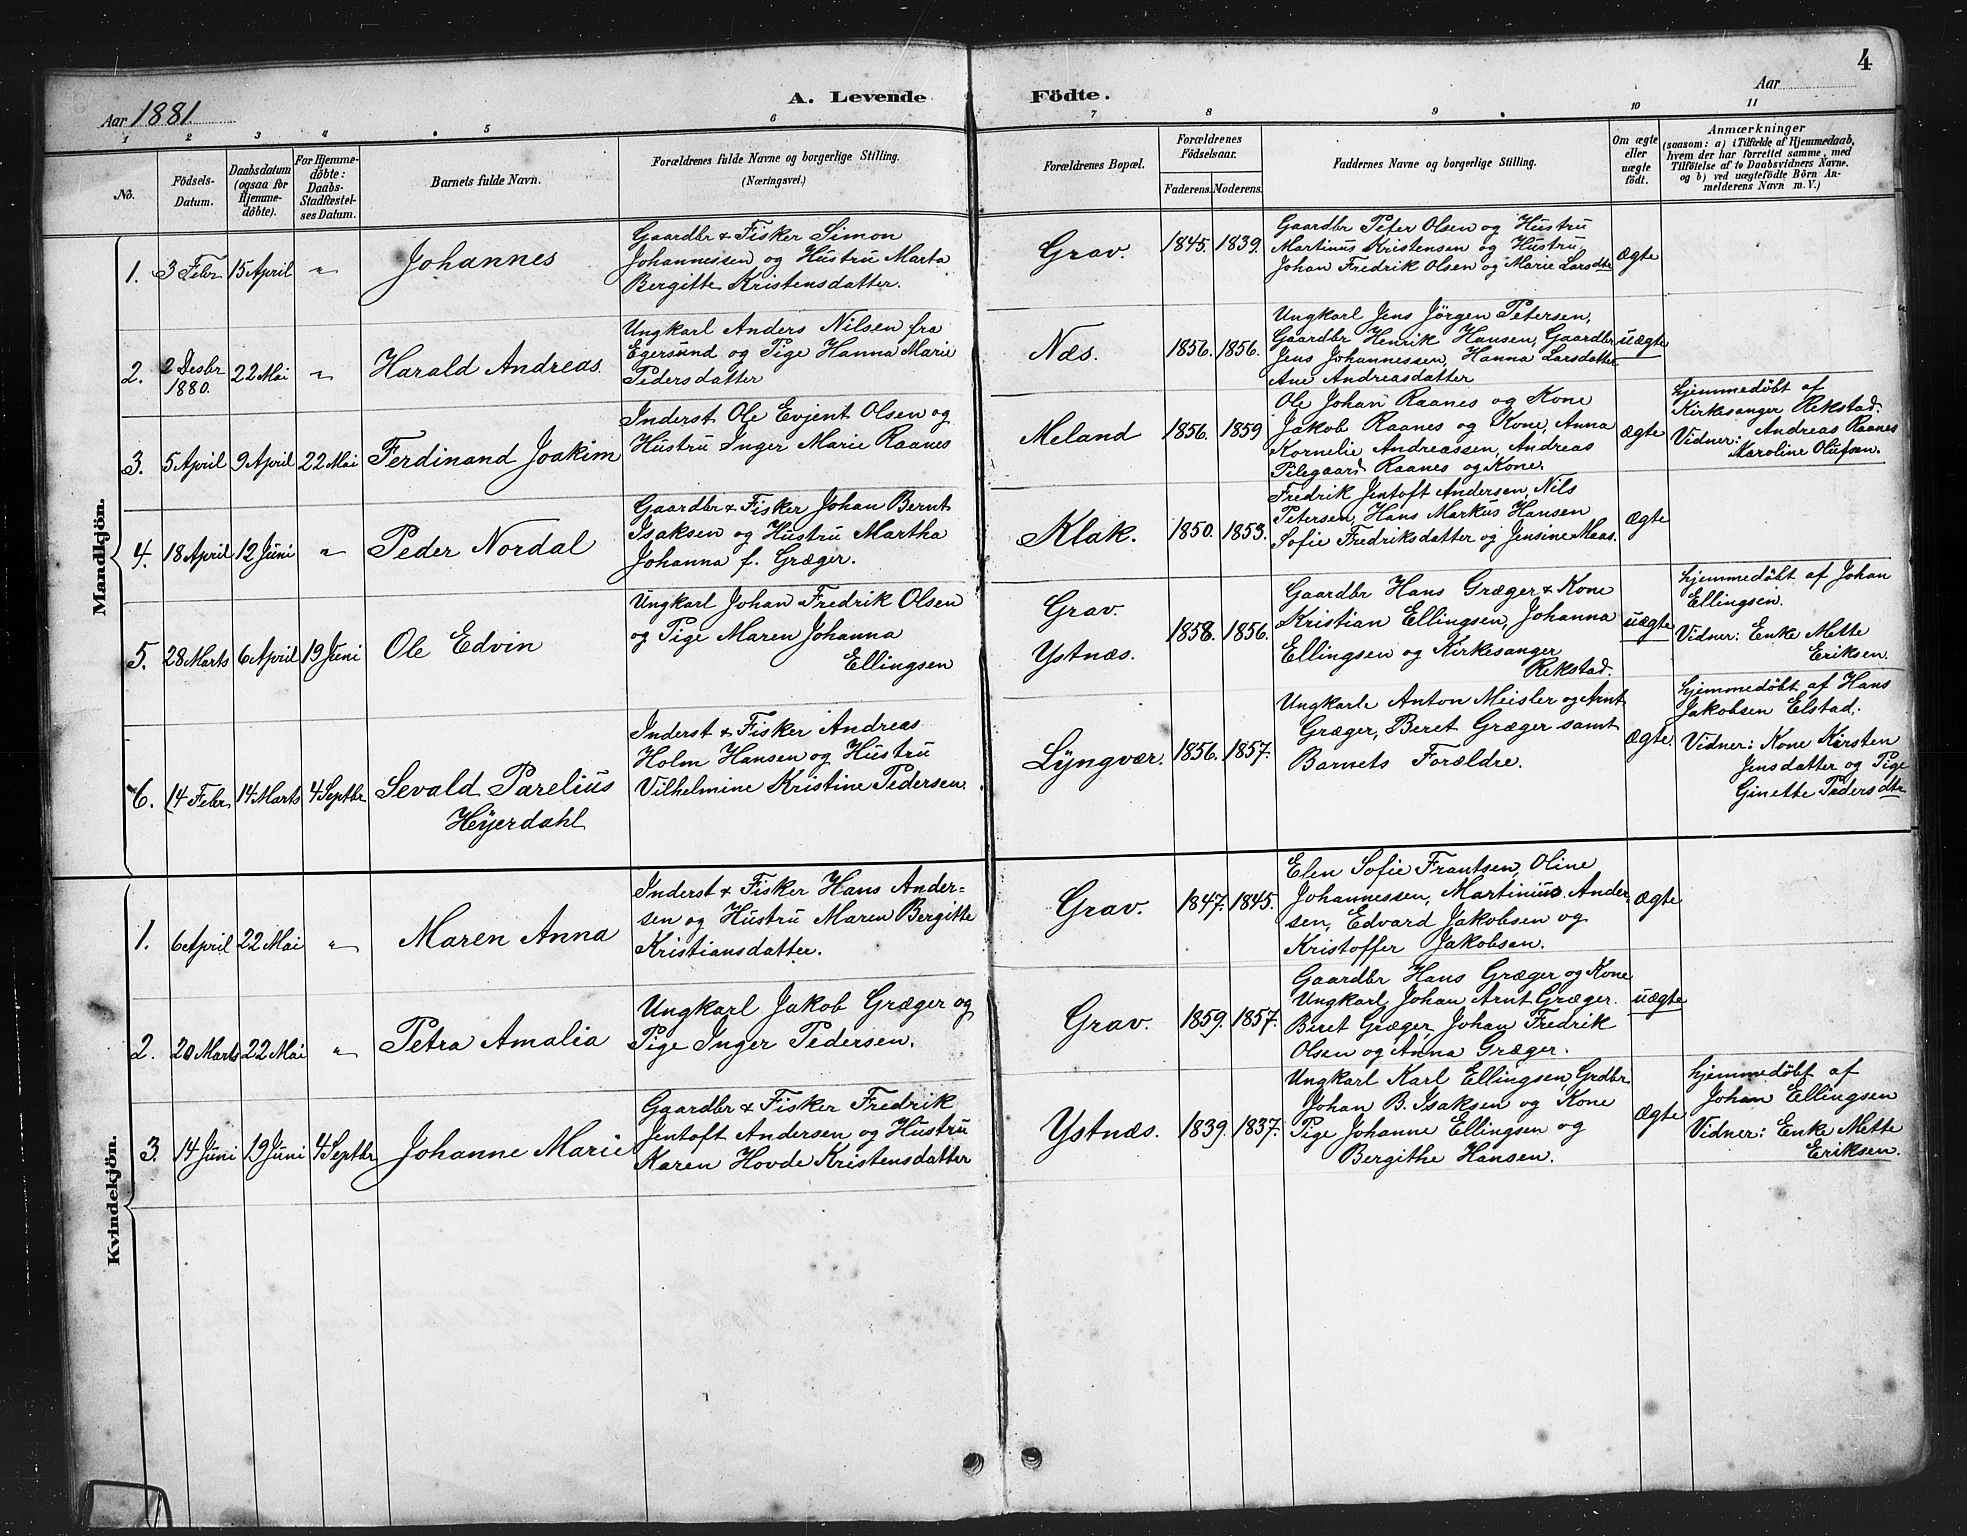 4
Aar 1881.
A. Levende Födte.
Aar
1 2 3 4 5 6 7 8 9 10 11
No.
Födsels-Datum.
Daabsdatum (ogsaa for Hjemme-döbte).
For Hjemme-döbte: Daabs-Stadfæstel-ses Datum.
Barnets fulde Navn.
Forældrenes fulde Navne og borgerlige Stilling.
(Næringsvei.)
Forældrenes Bopæl.
Forældrenes Födselsaar.
Faderens. Moderens.
Faddernes Navne og borgerlige Stilling.
Om ægte eller uægte födt.
Anmærkninger
(saasom: a) i Tilfælde af Hjemmedaab,
hvem der har forrettet samme, med
Tilföielse af to Daabsvidners Navne.
og b) ved uægtefödte Börn An-
melderens Navn m. V.)
Mandkjön.
1. 3 Febr 15 April " Johannes
Gaardbr & Fisker Simon
Johannessen og Hustru Marta
Bergitte Kristensdatter.
Grav. 1845. 1839.
Gaardbr Peter Olsen og Hustru
Martinus Kristensen og Hustru
Johan Fredrik Olsen og Marie Larsdtr
Ægte
2. 2 Desbr 1880. 22 Mai " Harald Andreas.
Ungkarl Anders Nilsen fra
Egersund og Pige Hanna Marie
Pedersdatter
Næs. 1856. 1856.
Ungkarl Jens Jörgen Petersen,
Gaardbr Henrik Hansen, Gaardbr
Jens Johannessen, Hanna Larsdatter
Ane Andreasdatter
uægte
3. 5 April 9 April 22 Mai Ferdinand Joakim
Inderst Ole Evjent Olsen og
Hustru Inger Marie Raanes
Meland 1856. 1859
Ole Johan Raanes og Kone
Jakob Raanes og Kone, Anna
Kornelie Andreassen, Andreas
Pilegaard Raanes og Kone.
Ægte
Hjemmedöbt af
Kirksanger Rekstad.
Vidner: Andreas Raanes
Maroline Olufsen.
4. 18 April 12 Juni " Peder Nordal
Gaardbr & Fisker Johan Bernt
Isaksen og Hustru Martha
Johanna f. Græger.
Klak. 1850. 1853.
Fredrik Jentoft Andersen, Nils
Petersen, Hans Markus Hansen
Sofie Fredriksdatter og Jensine Maas.
Ægte
5. 28 Marts 6 April 19 Juni Ole Edvin
Ungkarl Johan Fredrik Olsen
og Pige Maren Johanna
Ellingsen
Grav.
Ystnæs.
1858. 1856.
Gaardbr Hans Græger & Kone
Kristian Ellingsen, Johanna
Ellingsen og Kirkesanger
Rekstad.
uægte
Hjemmedöbt af Johan
Ellingsen.
Vidner: Enke Mette
Eriksen.
6. 14 Febr 14 Marts 4 Septbr Sevald Parelius
Heyerdahl
Inderst & Fisker Andreas
Holm Hansen og Hustru
Vilhelmine Kristine Pedersen.
Lyngvær. 1856. 1857.
Ungkarle Anton Meisler og Arnt
Græger, Beret Græger samt
Barnets Forældre.
Ægte.
Hjemmedöbt af Hans
Jakobsen Elstad.
Vidner: Kone Kirsten
Jensdatter og Pige
Ginette Pedersdtr
Kvindekjön.
1. 6 April 22 Mai " Maren Anna
Inderst & Fisker Hans Ander=
sen og Hustru Maren Bergitte
Kristiansdatter.
Grav. 1847. 1845.
Elen Sofie Frantsen, Oline
Johannessen, Martinius Ander-
sen, Edvard Jakobsen og
Kristoffer Jakobsen.
Ægte
2. 20 Marts 22 Mai " Petra Amalia
Ungkarl Jakob Græger og
Pige Inger Pedersen.
Grav. 1859. 1857.
Gaardbr Hans Græger og Kone
Ungkarl Johan Arnt Græger.
Beret Græger, Johan Fredrik
Olsen og Anna Græger.
uægte
3. 14 Juni 19 Juni 4 Septbr Johanne Marie
Gaardbr & Fisker Fredrik
Jentoft Andersen og Hustru
Karen Hovde Kristensdatter
Ystnæs. 1839. 1837.
Ungkarl Karl Ellingsen, Grdbr
Johan B. Isaksen og Kone
Pige Johanne Ellingsen og
Bergithe Hansen.
Ægte
Hjemmedöbt af
Johan Ellingsen
Vidner: Enke Mette
Eriksen.